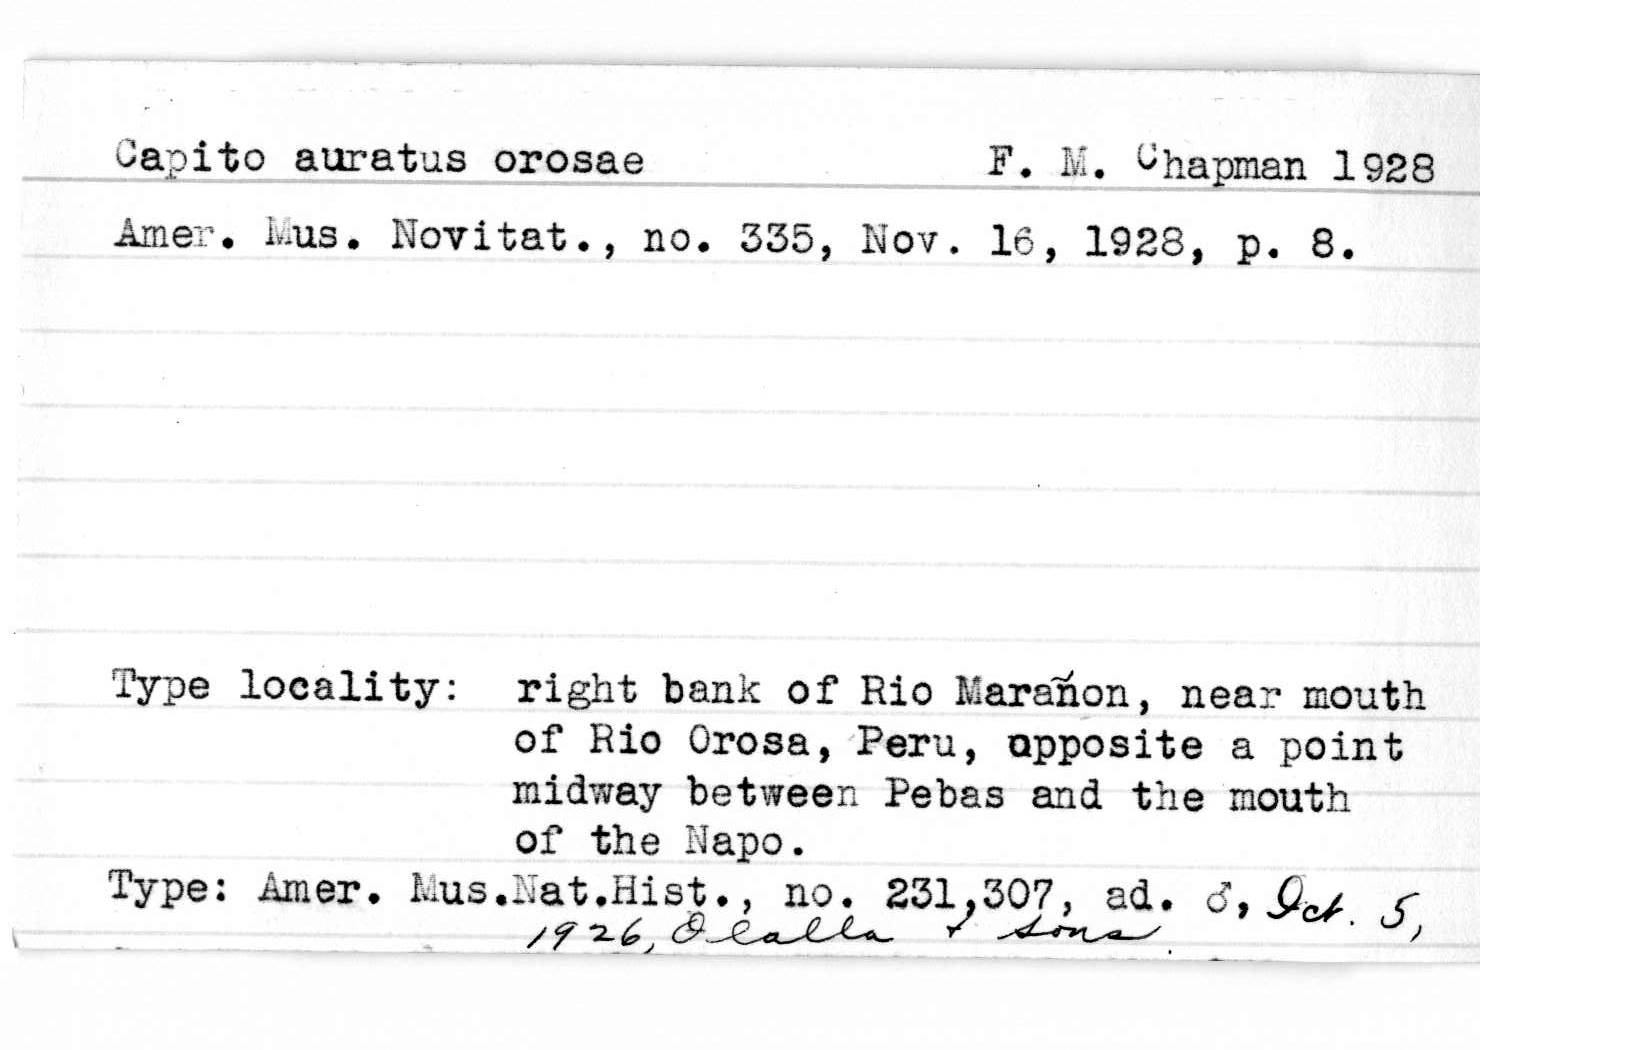 Capito auratus orosae F. M. Chapman 1928
Amer. Mus. Novitat., no. 335, Nov. 16, 1928, p. 8.
Type locality: right bank of Rio Marañon, near mouth
of Rio Orosa, Peru, opposite a point
midway between Pebas and the mouth
of the Napo.
Type: Amer. Mus.Nat.Hist., no. 231,307, ad. ♂, Oct. 5,
1926, Olalla + sons.